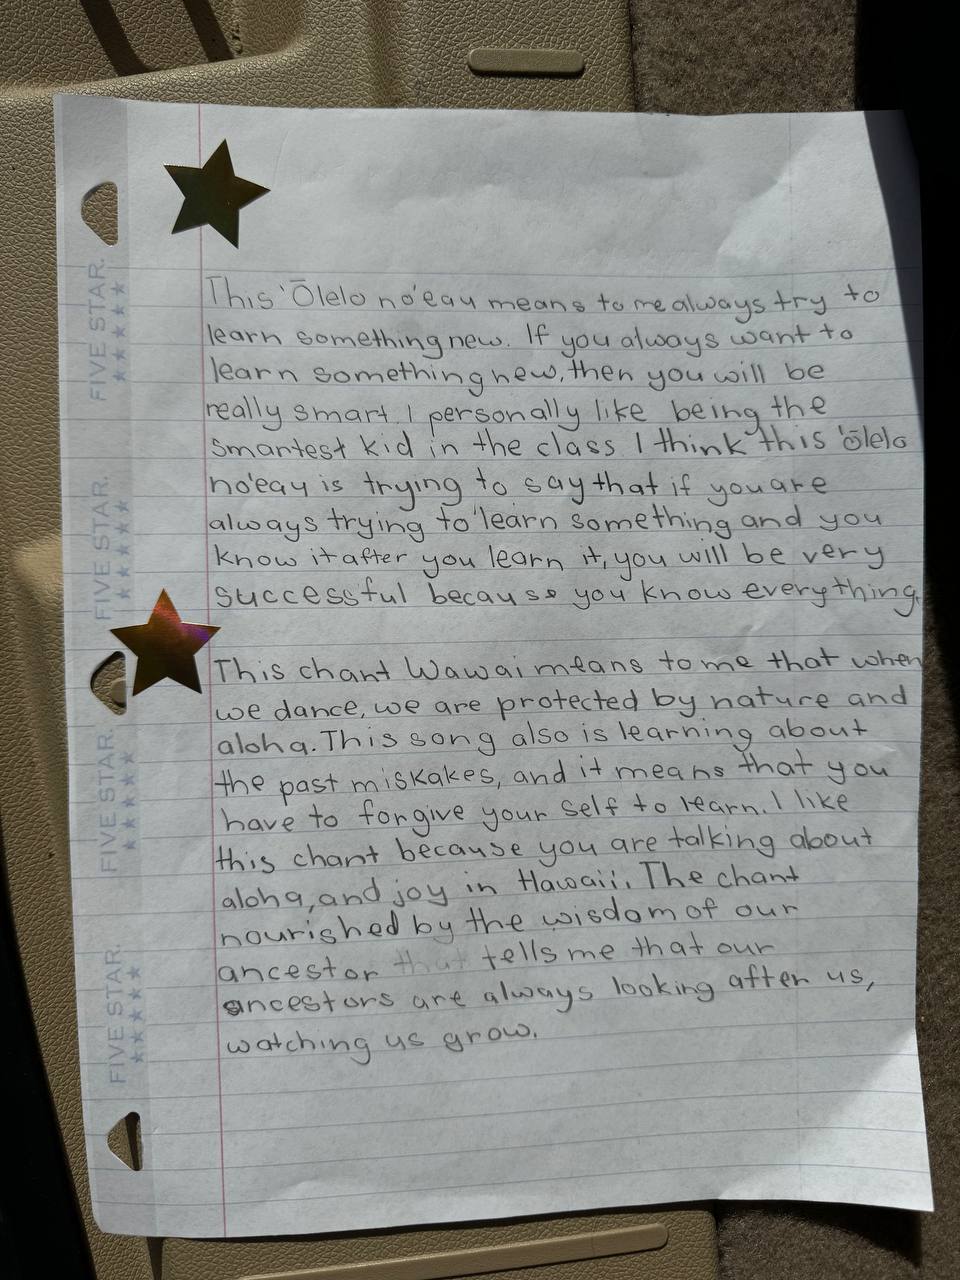 This 'Ōlelo no'eau means to me always try to
learn something new. If you always want to
learn something new, then you will be
really smart. I personally like being the
smartest kid in the class. I think this 'ōlelo
no'eau is trying to say that if you are
always trying to learn something and you
know it after you learn it, you will be very
successful because you know everything.
This chant Wawai means to me that when
we dance, we are protected by nature and
aloha. This song also is learning about
the past miskakes, and it means that you
have to forgive your self to learn. I like
this chant because you are talking about
aloha, and joy in Hawaii. The chant
nourished by the wisdom of our
ancestor that tells me that our
ancestors are always looking after us,
watching us grow.
FIVE STAR.
FIVE STAR.
FIVE STAR.
FIVE STAR.